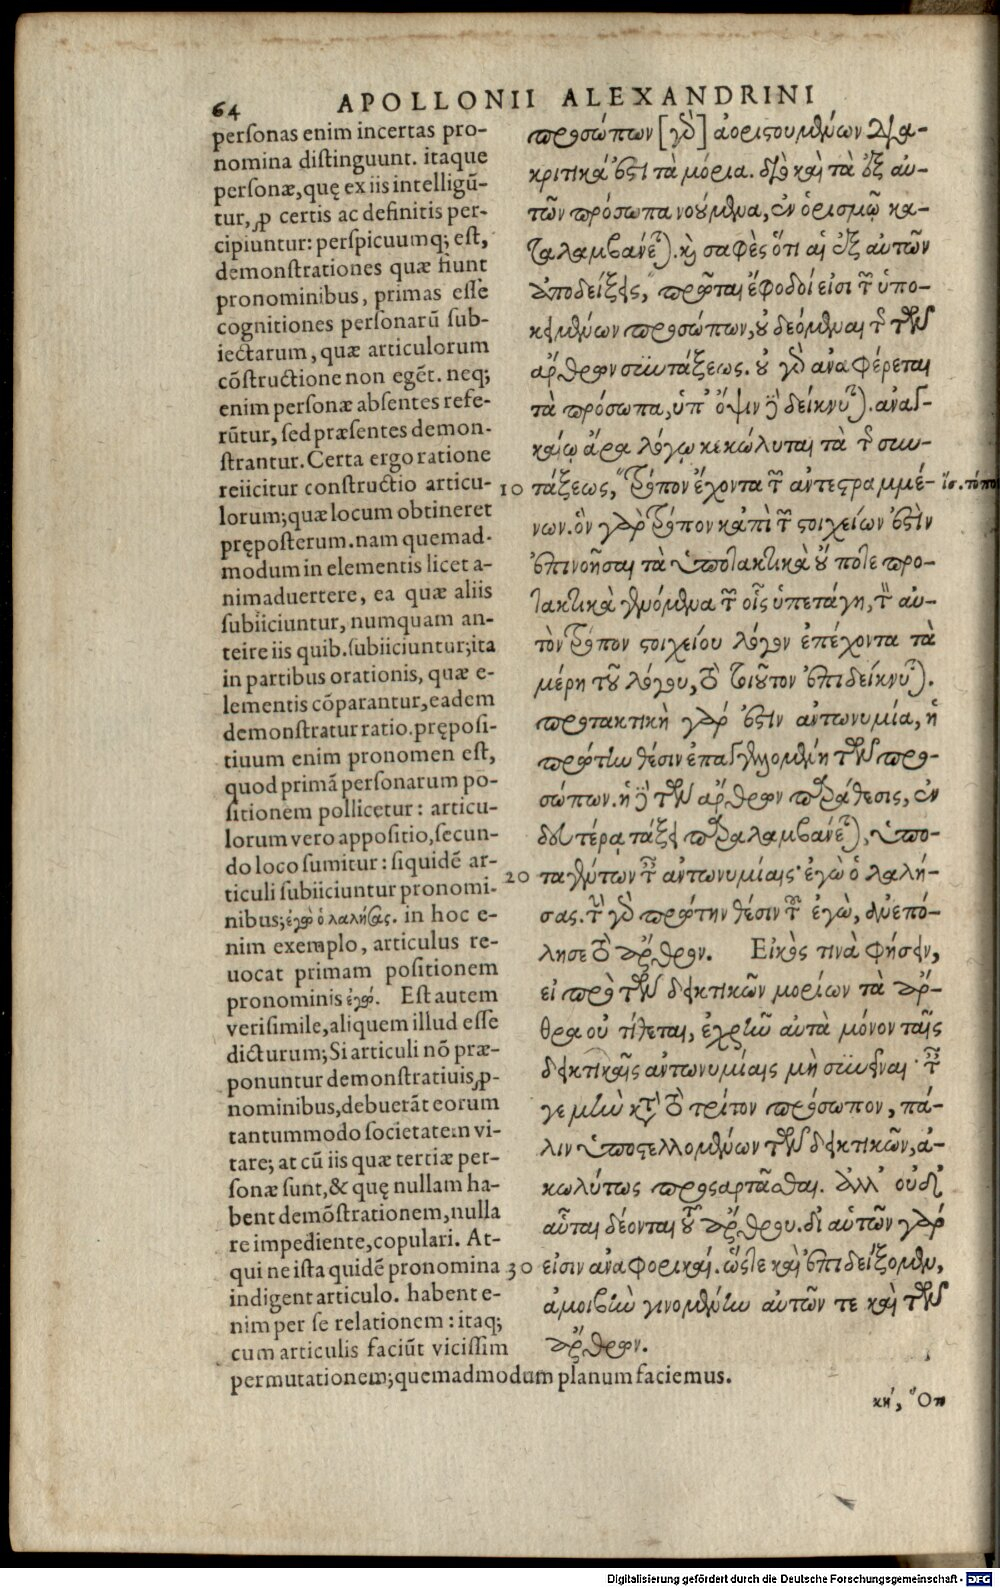 64 APOLLONII ALEXANDRINI
personas enim incertas pro-
nomina distinguunt. itaque
personæ, quę ex iis intelligũ-
tur, ꝓ certis ac definitis per-
cipiuntur: perspicuumq; est,
demonstrationes quæ fiunt
pronominibus, primas esse
cognitiones personarũ sub-
iectarum, quæ articulorum
cõstructione non egẽt. neq;
enim personæ absentes refe-
rũtur, sed præsentes demon-
strantur. Certa ergo ratione
reiicitur constructio articu-
lorum; quæ locum obtineret
pręposterum. nam quemad-
modum in elementis licet a-
nimaduertere, ea quæ aliis
subiiciuntur, numquam an-
teire iis quib. subiiciuntur; ita
in partibus orationis, quæ e-
lementis cõparantur, eadem
demonstratur ratio. pręposi-
tiuum enim pronomen est,
quod primã personarum po-
sitionem pollicetur: articu-
lorum vero appositio, secun-
do loco sumitur: siquidẽ ar-
ticuli subiiciuntur pronomi-
nibus; ἐγὼ ὁ λαλήσας. in hoc e-
nim exemplo, articulus re-
uocat primam positionem
pronominis ἐγώ. Est autem
verisimile, aliquem illud esse
dicturum; Si articuli nõ præ-
ponuntur demonstratiuis ꝓ-
nominibus, debuerãt eorum
tantummodo societatem vi-
tare; at cũ iis quæ tertiæ per-
sonæ sunt, & quę nullam ha-
bent demõstrationem, nulla
re impediente, copulari. At-
qui ne ista quidẽ pronomina
indigent articulo. habent e-
nim per se relationem: itaq;
cum articulis faciũt vicissim
permutationem; quemadmodum planum faciemus.
προσώπων [γὸ] ἀορισουμένων δια-
κριτικά ἐστι τὰ μόρια. διὸ καὶ τὰ ἐξ αὐ-
τῶν πρόσωπα νούμενα, ἐν ὁρισμῷ κα-
ταλαμβάνεται. καὶ σαφὲς ὅτι αἱ ἐξ αὐτῶν
ἀποδείξεις, πρῶται ἔφοδοί εἰσι τῶν ὑπο-
κειμένων προσώπων, οὐ δεόμεναι τῆς τῶν
ἄρθρων συντάξεως. οὐ γὸ ἀναφέρεται
τὰ πρόσωπα, ὑπ' ὄψιν δὲ δείκνυται. ἀναγ-
καίῳ ἄρα λόγῳ κεκώλυται τὰ τῆς συν-
10 τάξεως, τρόπον ἔχοντα τῶν ἀντεστραμμέ- ἴσ. τόπον
νων. ὃν γὰρ τρόπον κἀπὶ τῶν στοιχείων ἐστὶν
ἐπινοῆσαι τὰ ὑποτακτικὰ οὔ ποτε προ-
τακτικὰ γενόμενα τῶν οἷς ὑπετάγη, τὸν αὐ-
τὸν τρόπον στοιχείου λόγον ἐπέχοντα τὰ
μέρη τοῦ λόγου, τὸ τοιοῦτον ἐπιδείκνυται.
προτακτικὴ γάρ ἐστιν ἀντωνυμία, ἡ
πρώτην θέσιν ἐπαγγελλομένη τῶν προ-
σώπων. ἡ δὲ τῶν ἄρθρων παράθεσις, ἐν
δευτέρᾳ τάξει παραλαμβάνεται, ὑπο-
20 ταγέντων ταῖς ἀντωνυμίαις· ἐγὼ ὁ λαλή-
σας. τὴν γὸ πρώτην θέσιν τῆς ἐγὼ, ἀνεπό-
λησε τὸ ἄρθρον. Εἰκός τινὰ φήσειν,
εἰ πρὸ τῶν δεικτικῶν μορίων τὰ ἄρ-
θρα οὐ τίθεται, ἐχρῆν αὐτὰ μόνον ταῖς
δεικτικαῖς ἀντωνυμίαις μὴ συνεῖναι· ταῖς
γε μὴν κατὰ τὸ τρίτον πρόσωπον, πά-
λιν ὑποστελλομένων τῶν δεικτικῶν, ἀ-
κωλύτως προσαρτᾶσθαι. ἀλλ' οὐδὲ
αὗται δέονται τοῦ ἄρθρου. δι' αὑτῶν γάρ
30 εἰσιν ἀναφορικαί. ὥστε καὶ ἐπιδείξομεν,
ἀμοιβὴν γινομένην αὐτῶν τε καὶ τῶν
ἄρθρων.
κή, Ὃπ
Digitalisierung gefördert durch die Deutsche Forschungsgemeinschaft - DFG